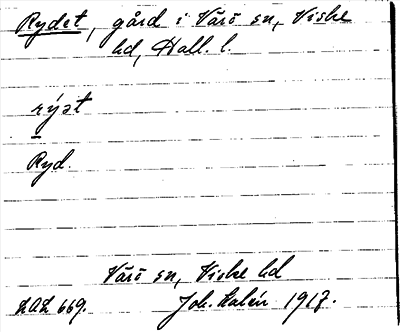 Rydet, gård i Värö sn, Viske
hd, Hall. l.
rýət
Ryd.
Värö sn, Viske hd
Joh. Kalén 1917.